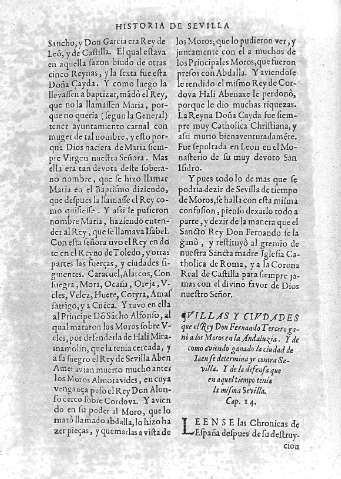 HISTORIA DE SEVILLA
Sancho, y Don Garcia era Rey de
Leõ, y de Castilla. El qual estava
en aquella sazon biudo de otras
cinco Reynas, y la sexta fue esta
Doña Cayda. Y como luego la
llevassen a baptizar, mãdò el Rey,
que no la llamassen Maria, por-
que no queria (segun la General)
tener ayuntamiento carnal con
muger de tal nombre, y esto por-
que Dios naciera de Maria siem-
pre Virgen nuestra Señora. Mas
ella era tan devota deste sobera-
no nombre, que se hizo llamar
Maria en el Baptismo diziendo,
que despues la llamasse el Rey co-
mo quisiesse. Y assi le pusieron
nombre Maria, haziendo enten-
der al Rey, que se llamava Isabel.
Con esta señora uvo el Rey en do
te en el Reyno de Toledo, y otras
partes las fuerças, y ciudades si-
guientes. Caracuel, Alarcos, Con
suegra, Mora, Ocaña, Oreja, V-
cles, Velez, Huete, Amal
y Cueca. Y uvo en ella
al Principe Dõ Sãcho Alfonso, al
qual mataron los Moros sobre V-
cles, por defenderla de Hali Mira-
mamolin, que la tenia cercada, y
a su suegro el Rey de Sevilla Aben
Amet avian muerto mucho antes
los Moros Almoravides, en cuya
vengança puso el Rey Don Alon-
so cerco sobre Cordova. Y avien
do en su poder al Moro, que lo
matò llamado abdalla, lo hizo ha
zer pieças, y quemarlas a vista de
los Moros, que lo pudieron ver, y
juntamente con el a muchos de
los Principales Moros, que fueron
presos con Abdalla. Y aviendose
le rendido el mismo Rey de Cor-
dova Hali Abenaxe le perdonò,
porque le dio muchas riquezas.
La Reyna Doña Cayda fue siem-
pre muy Catholica Christiana, y
assi murio bienaventuradamẽte.
Fue sepultada en Leon en el Mo-
nasterio de su muy devoto San
Isidro.
Y pues todo lo mas que se
podria dezir de Sevilla de tiempo
de Moros, se halla con esta misma
confusion, pienso dexarlo todo a
parte, y dezir de la manera que el
Sancto Rey Don Fernando se la
ganò, y restituyò al gremio de
nuestra Sancta madre Iglesia Ca-
tholica de Roma, y a la Corona
Real de Castilla para siempre ja-
mas con el divino favor de Dios
nuestro Señor.
VILLAS Y CIVDADES
que el Rey Don Fernando Tercero ga-
nò a los Moros en la Andaluzia. Y de
como aviendo ganado la ciudad de
Iaen se determina yr contra Se-
villa. Y de la defensa que
en aquel tiempo tenia
la misma Sevilla.
Cap. 14.
LEENSE las Chronicas de
España despues de su destruy-
cion